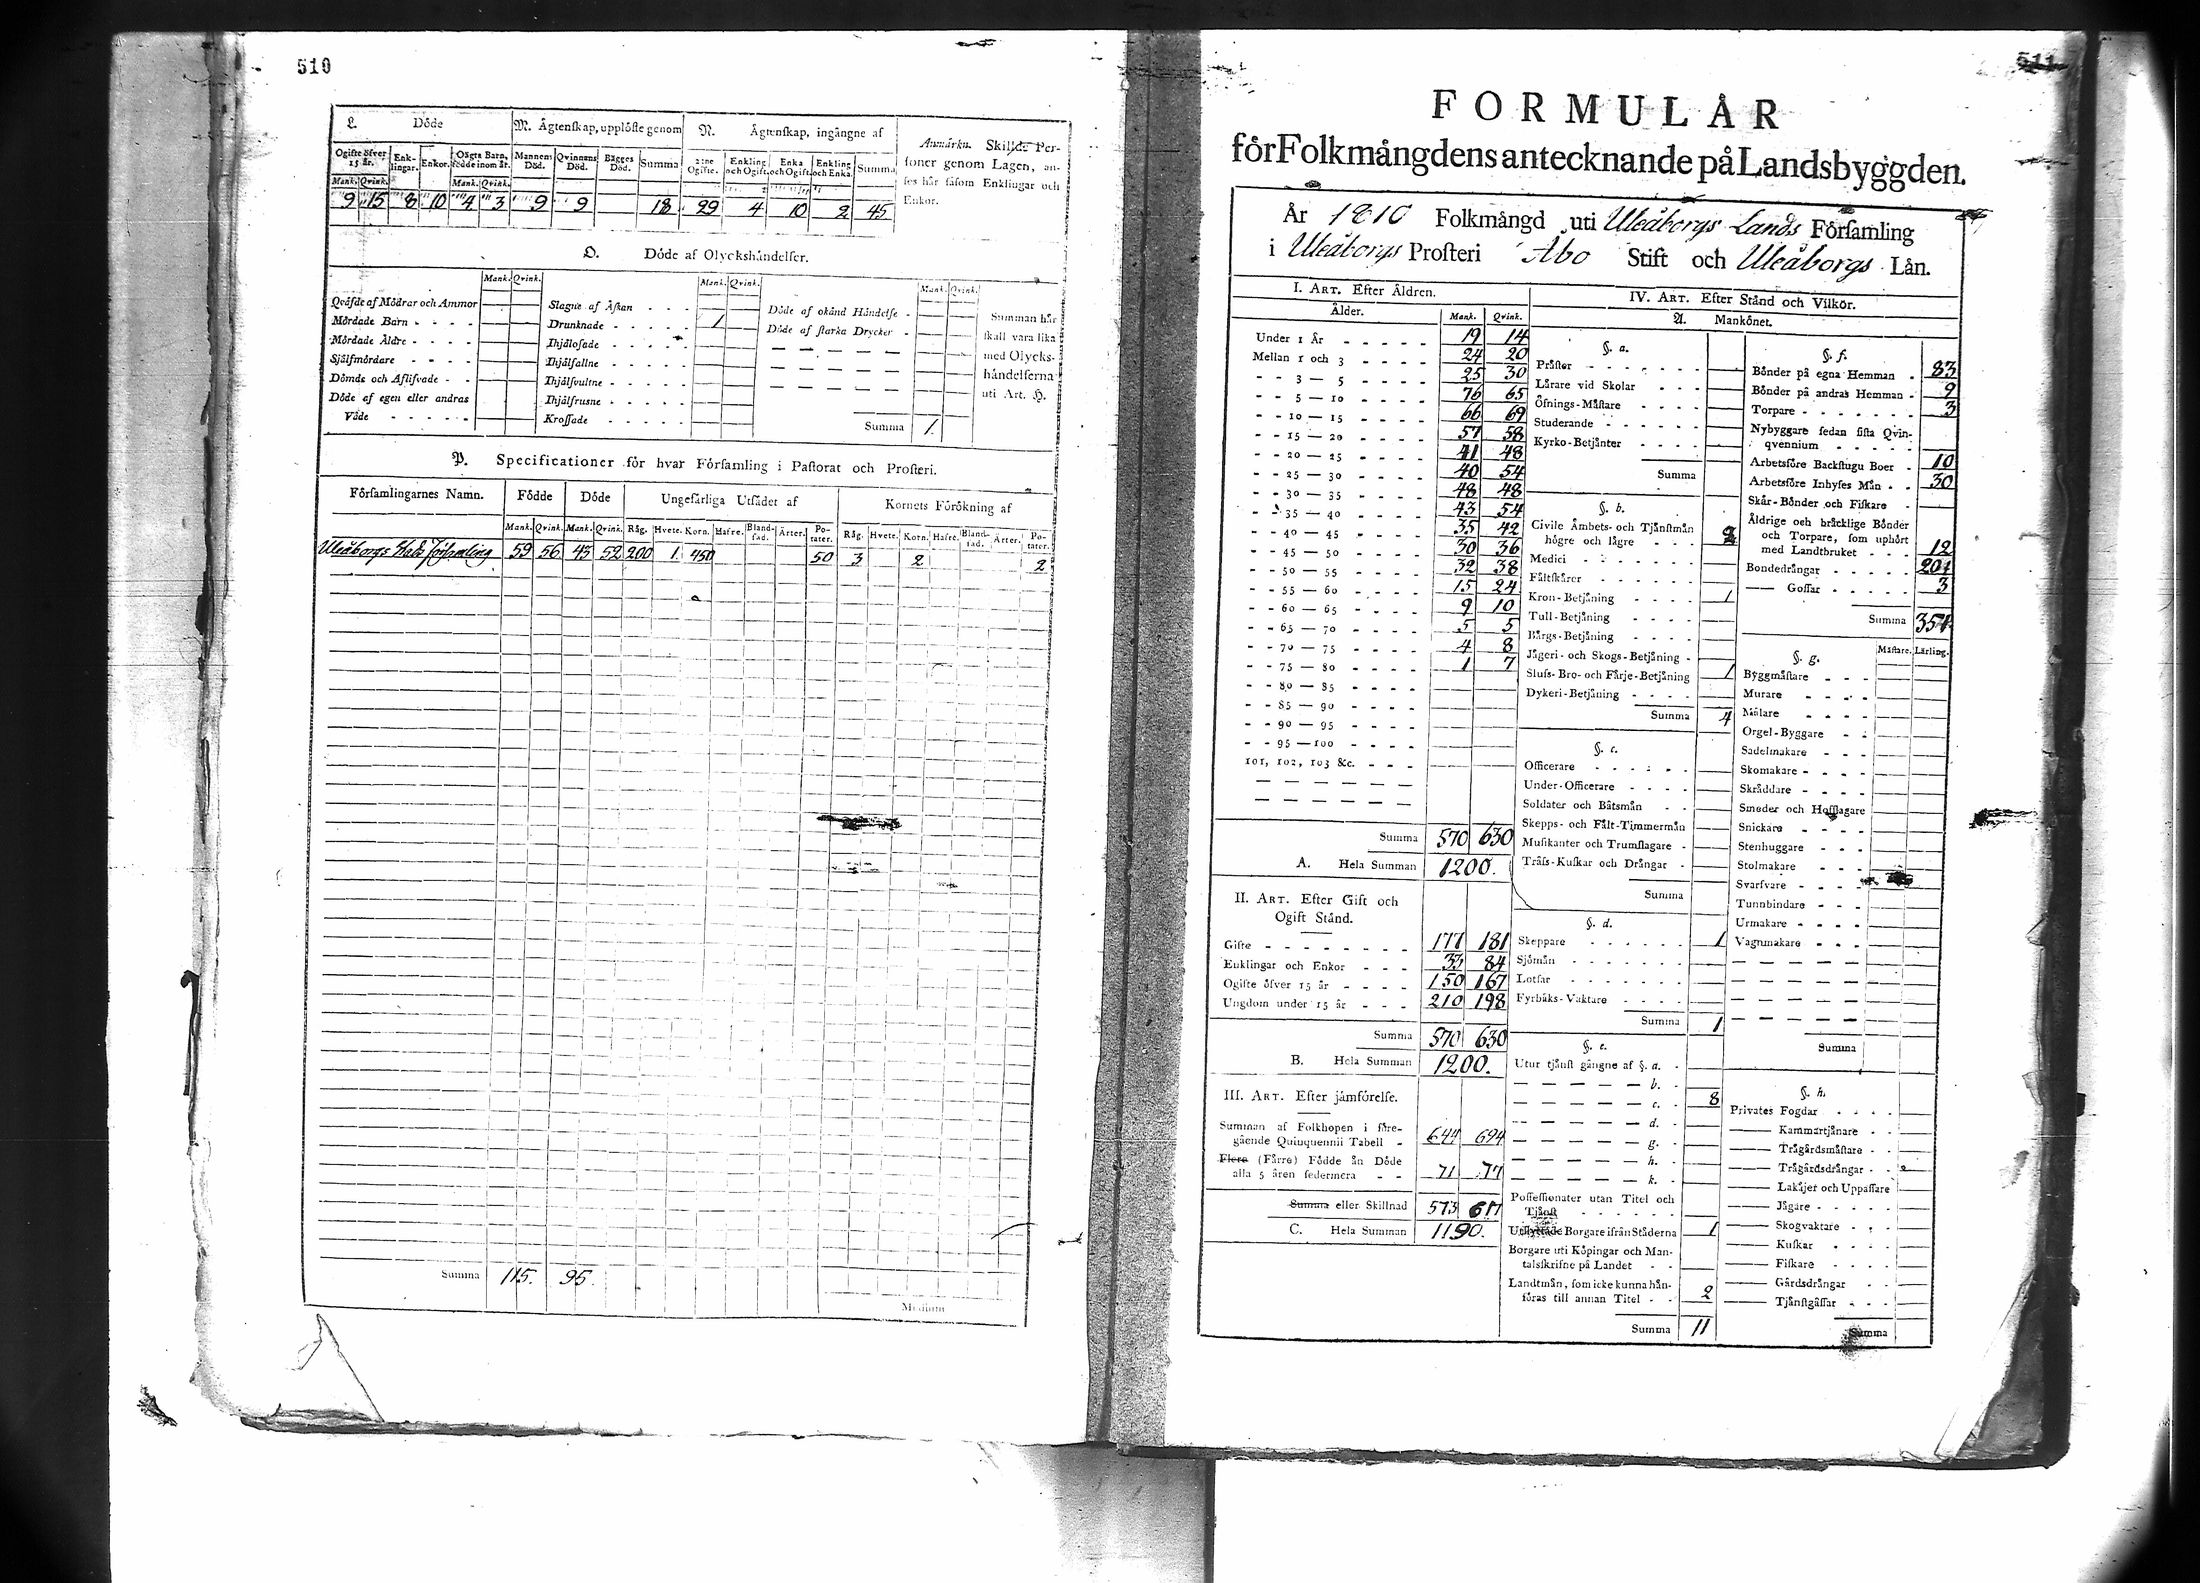 510
L. Döde
M. Ägtenskap, upplöste genom
N. Ägtenskap, ingångne af
Anmärkn. Skillde Personer
genom Lagen, an-
ses här såsom Enklingar och
Enkor.
Ogifte öfver 15 år. Enklingar. Enkor. Oägta Barn, födde inom år. Mannens Död. Qvinnans Död. Bägges Död. Summa 2:ne Ogifte. Enkling och Ogift. Enka och Ogift. Enkling och Enka. Summa
Mank. Qvink. Mank. Qvink.
9 15 8 10 4 3 9 9 18 29 4 10 2 45
O. Döde af Olyckshändelser.
Mank. Qvink. Mank. Qvink. Mank. Qvink.
Qväfde af Mödrar och Ammor
Mördade Barn
Mördade Äldre
Sjelfmördare
Dömde och Aflifvade
Döde af egen eller andras
Våde
Slagne af Åskan
Drunknade 1
Ihjälosade
Ihjälfallne
Ihjälsvultne
Ihjälfrusne
Krossade
Döde af okänd Händelse
Döde af starka Drycker
Summa 1.
Summan här
skall vara lika
med Olycks-
händelserna
uti Art. H.
P. Specificationer för hvar Församling i Pastorat och Prosteri.
Församlingarnes Namn. Födde Döde Ungefärliga Utsädet af Kornets Förökning af
Mank. Qvink. Mank. Qvink. Råg. Hvete. Korn. Hafre. Blandsäd. Ärter. Potater. Råg. Hvete. Korn. Hafre. Blandsäd. Ärter. Potater.
Uleåborgs församling 59 56 43 52 200 1 450 50 3 2 2
Summa 115. 95.
Medium
511
FORMULÄR
för Folkmängdens antecknande på Landsbyggden.
År 1810 Folkmängd uti Uleåborgs Lands Församling
i Uleåborgs Prosteri Åbo Stift och Uleåborgs Län.
I. ART. Efter Åldren.
Ålder. Mank. Qvink.
Under 1 År 19 14
Mellan 1 och 3 24 20
3 — 5 25 30
5 — 10 76 65
10 — 15 66 69
15 — 20 57 58
20 — 25 41 48
25 — 30 40 54
30 — 35 48 48
35 — 40 43 54
40 — 45 35 42
45 — 50 30 36
50 — 55 32 38
55 — 60 15 24
60 — 65 9 10
65 — 70 5 5
70 — 75 4 8
75 — 80 1 7
80 — 85
85 — 90
90 — 95
95 — 100
101, 102, 103 &c.
Summa 570 630
A. Hela Summan 1200.
II. ART. Efter Gift och
Ogift Stånd.
Gifte 177 181
Enklingar och Enkor 33 84
Ogifte öfver 15 år 150 167
Ungdom under 15 år 210 198
Summa 570 630
B. Hela Summan 1200.
III. ART. Efter jämförelse.
Summan af Folkhopen i före-
gående Quinquennii Tabell 644 694
Flere (Färre) Födde än Döde
alla 5 åren sedermera 71 77
Summa eller Skillnad 573 617
C. Hela Summan 1190.
IV. ART. Efter Stånd och Vilkor.
A. Mankönet.
§. a.
Präster
Lärare vid Skolar
Öfnings-Mästare
Studerande
Kyrko-Betjänter
Summa
§. b.
Civile Ämbets- och Tjänstmän
högre och lägre 2
Medici
Fältskärer
Kron-Betjäning 1
Tull-Betjäning
Bärgs-Betjäning
Jägeri- och Skogs-Betjäning
Sluss- Bro- och Färje-Betjäning 1
Dykeri-Betjäning
Summa 4
§. c.
Officerare
Under-Officerare
Soldater och Båtsmän
Skepps- och Fält-Timmermän
Musikanter och Trumslagare
Träss-Kuskar och Drängar
Summa
§. d.
Skeppare 1
Sjömän
Lotsar
Fyrbåks-Vaktare
Summa 1
§. e.
Utur tjänst gångne af §. a.
b.
c. 8
d.
g.
h.
k.
Possessionater utan Titel och
Tjänst
Borgare ifrån Städerna 1
Borgare uti Köpingar och Man-
talsskrifne på Landet
Landtmän, som icke kunna hän-
föras till annan Titel 2
Summa 11
§. f.
Bönder på egna Hemman 83
Bönder på andras Hemman 9
Torpare 3
Nybyggare sedan sista Qvin-
qvennium
Arbetsföre Backstugu Boer 10
Arbetsföre Inhyses Män 30
Skär-Bönder och Fiskare
Åldrige och bräcklige Bönder
och Torpare, som uphört
med Landtbruket 12
Bondedrängar 204
Gossar 3
Summa 354
§. g. Mästare. Lärling.
Byggmästare
Murare
Målare
Orgel-Byggare
Sadelmakare
Skomakare
Skräddare
Smeder och Hofslagare
Snickare
Stenhuggare
Stolmakare
Svarfvare
Tunnbindare
Urmakare
Vagnmakare
Summa
§. h.
Privates Fogdar
Kammartjänare
Trägårdsmästare
Trägårdsdrängar
Lakäjer och Uppassare
Jägare
Skogvaktare
Kuskar
Fiskare
Gårdsdrängar
Tjänstgåssar
Summa